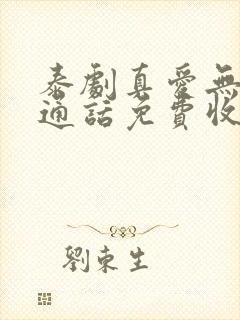 泰劇真愛無
通話免費收
劉東生